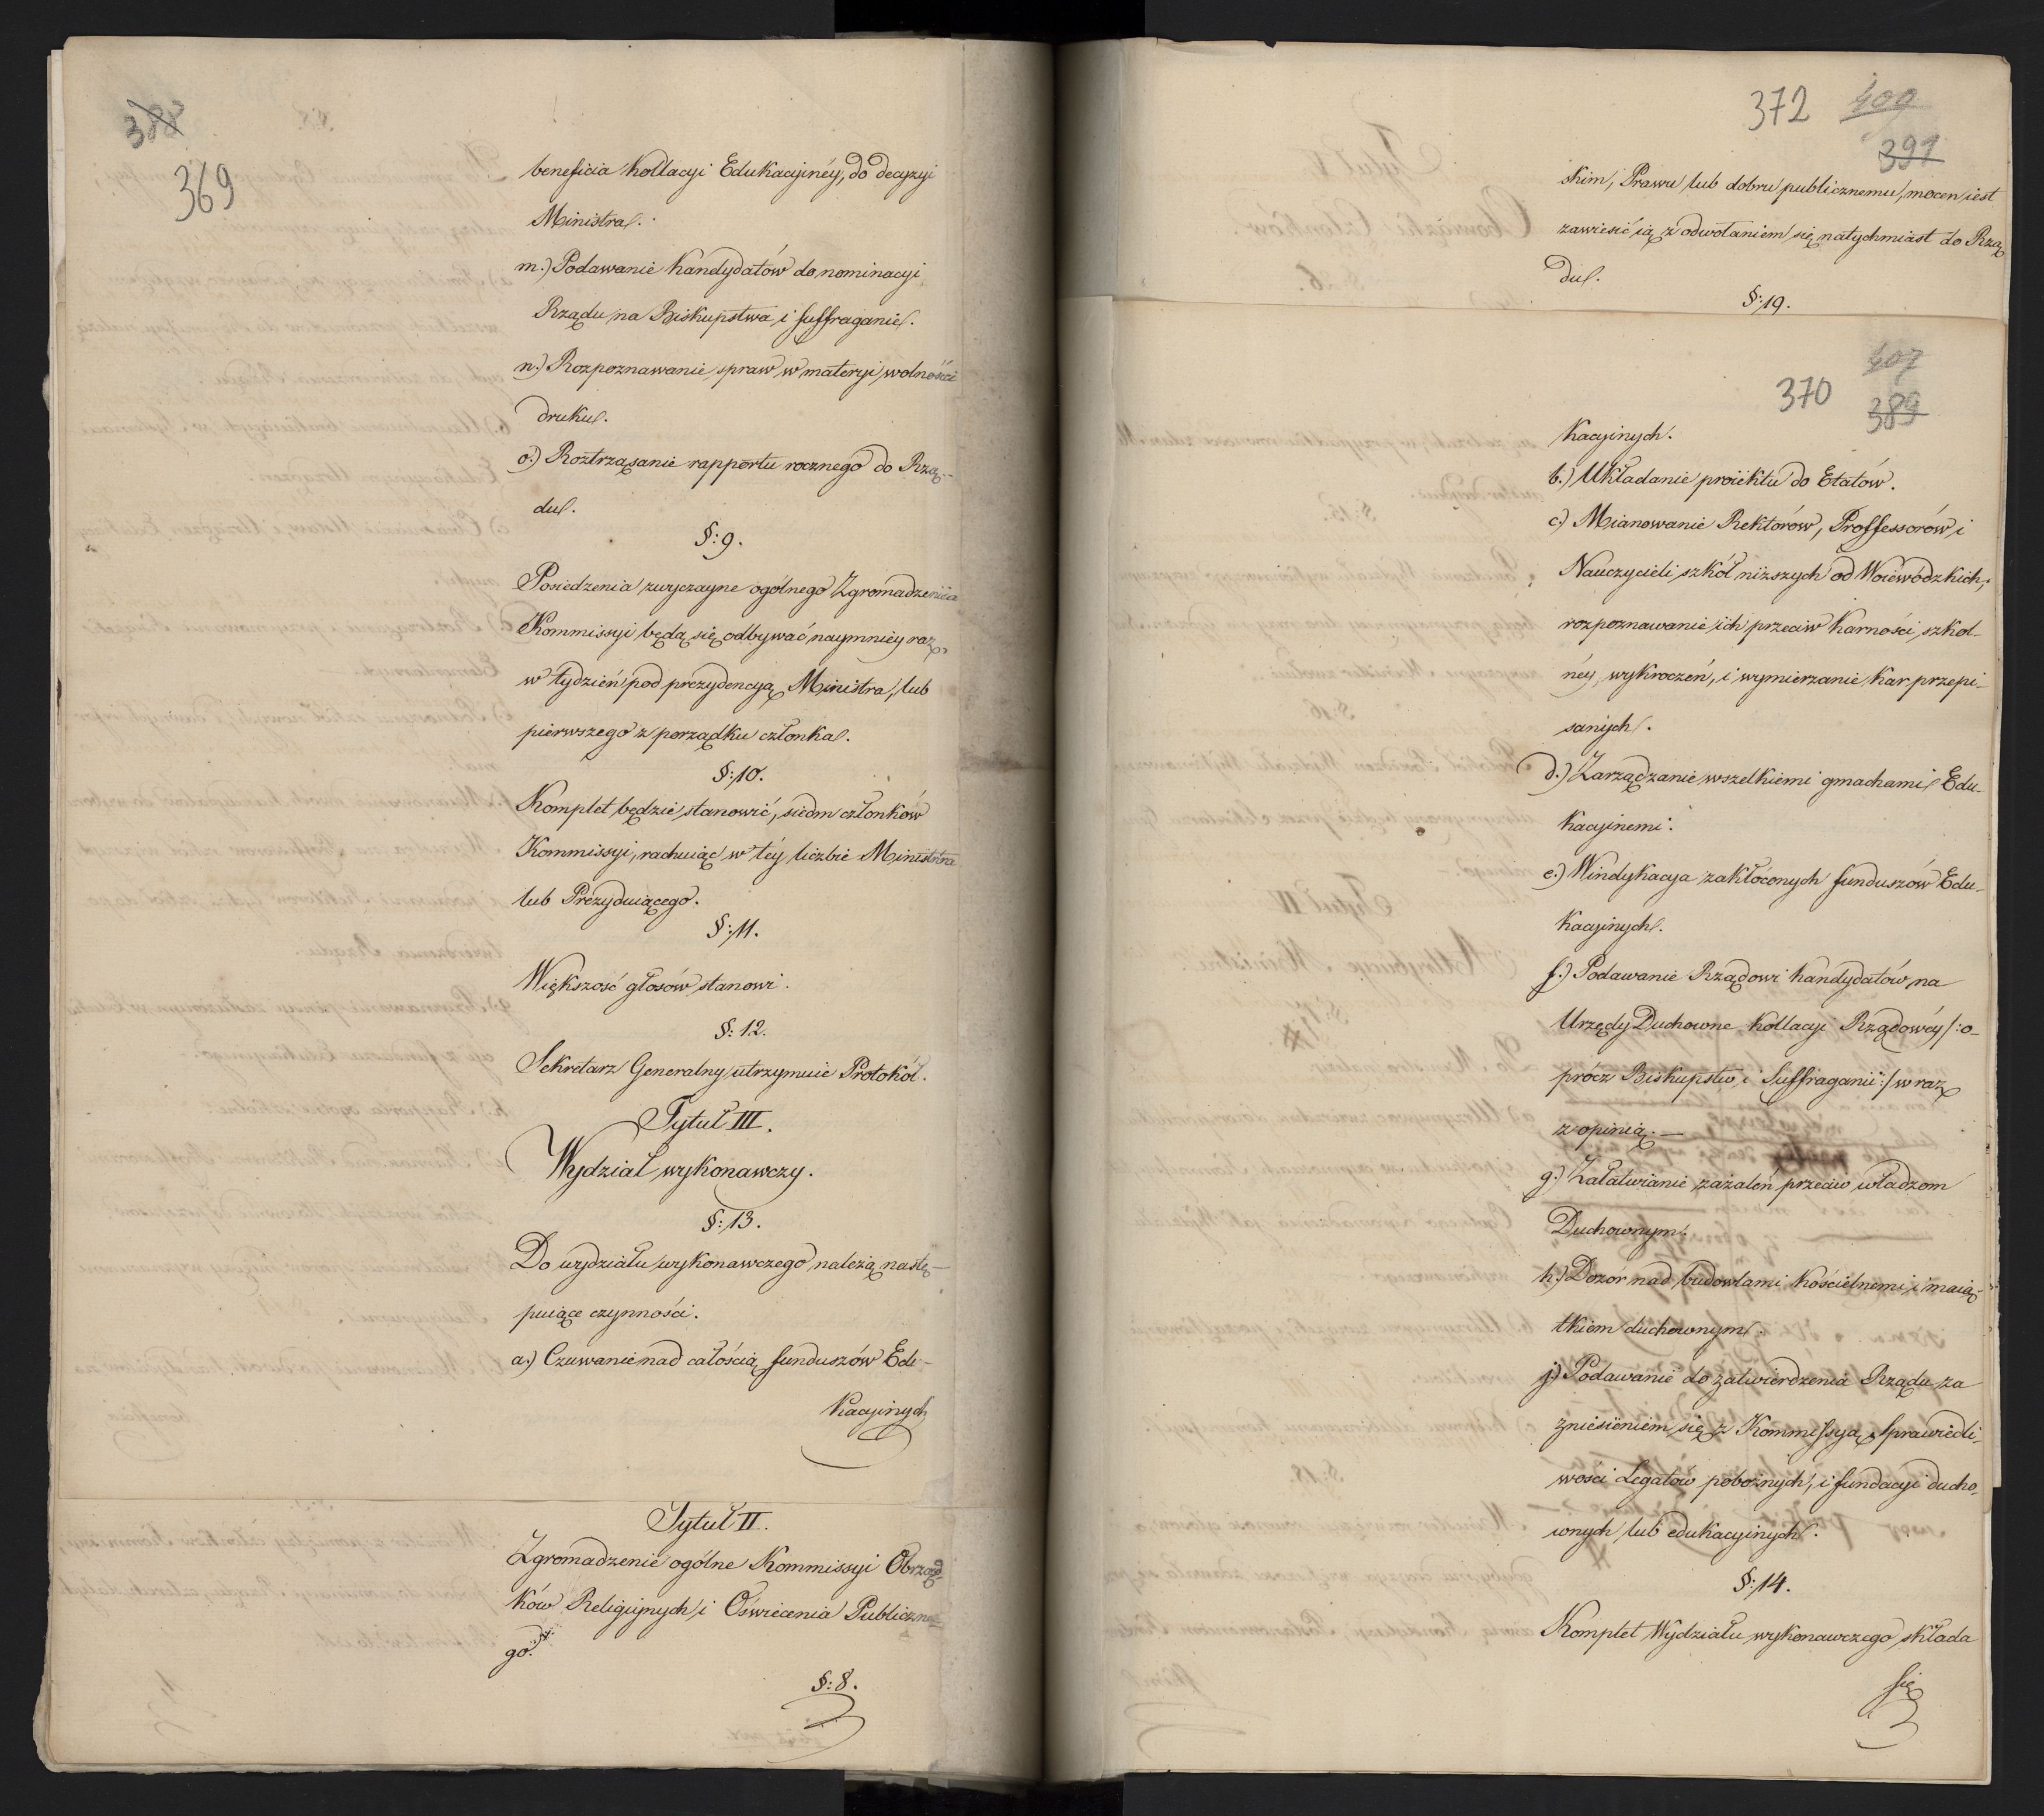 388
369
beneficia Kollacyi Edukacyinéy, do decyzyi
Ministra.
m.) Podawanie Kandydatów do nominacyi
Rządu na Biskupstwa i suffraganie.
n.) Rozpoznawanie spraw w materyi wolności
druku.
o.) Roztrząsanie rapportu rocznego do Rzą-
du.
§: 9.
Posiedzenia zwyczayne ogólnego Zgromadzenia
Kommissyi będą się odbywać naymniéy raz
w tydzień pod prezydencyą Ministra, lub
pierwszego z porządku członka.
§: 10.
Komplet będzie stanowić, siedm członków
Kommissyi, rachuiąc w téy liczbie Ministra
lub Prezyduiącego.
§: 11.
Większość głosów stanowi.
§: 12.
Sekretarz Generalny utrzymuie Protokół.
Tytuł III.
Wydział wykonawczy.
§: 13.
Do wydziału wykonawczego należą nastę-
puiące czynności.
a.) Czuwanie nad całością funduszów Edu-
Kacyinych
Tytuł II.
Zgromadzenie ogólne Kommissyi Obrząd-
ków Religiynych i Oświecenia Publiczne-
go.
§: 8.
372 409
391
skim, Prawu lub dobru publicznemu, mocen iest
zawiesić ią z odwołaniem się natychmiast do Rzą
du.
§: 19.
407
370 389
Kacyinych.
b.) Układanie proiektu do Etatów.
c.) Mianowanie Rektorów, Proffessorów i
Nauczycieli szkół niższych od Woiewódzkich,
rozpoznawanie ich przeciw Karności szkol-
néy wykroczeń, i wymierzanie Kar przepi-
sanych.
d.) Zarządzanie wszelkiemi gmachami Edu-
Kacyinemi.
e.) Windykacya zakłóconych funduszów Edu-
Kacyinych.
f.) Podawanie Rządowi Kandydatów na
Urzędy Duchowne Kollacyi Rządowéy /: o-
prócz Biskupstw i Suffraganii :/ wraz
z opinią. —
g.) Załatwianie zażaleń przeciw władzom
Duchownym.
h.) Dozór nad budowlami Kościelnemi i maią-
tkiem duchownym.
j.) Podawanie do zatwierdzenia Rządu za
zniesieniem się z Kommissyą Sprawiedli-
wości Legatów pobożnych, i fundacyi ducho-
wnych lub edukacyinych.
§: 14.
Komplet Wydziału wykonawczego składa
się